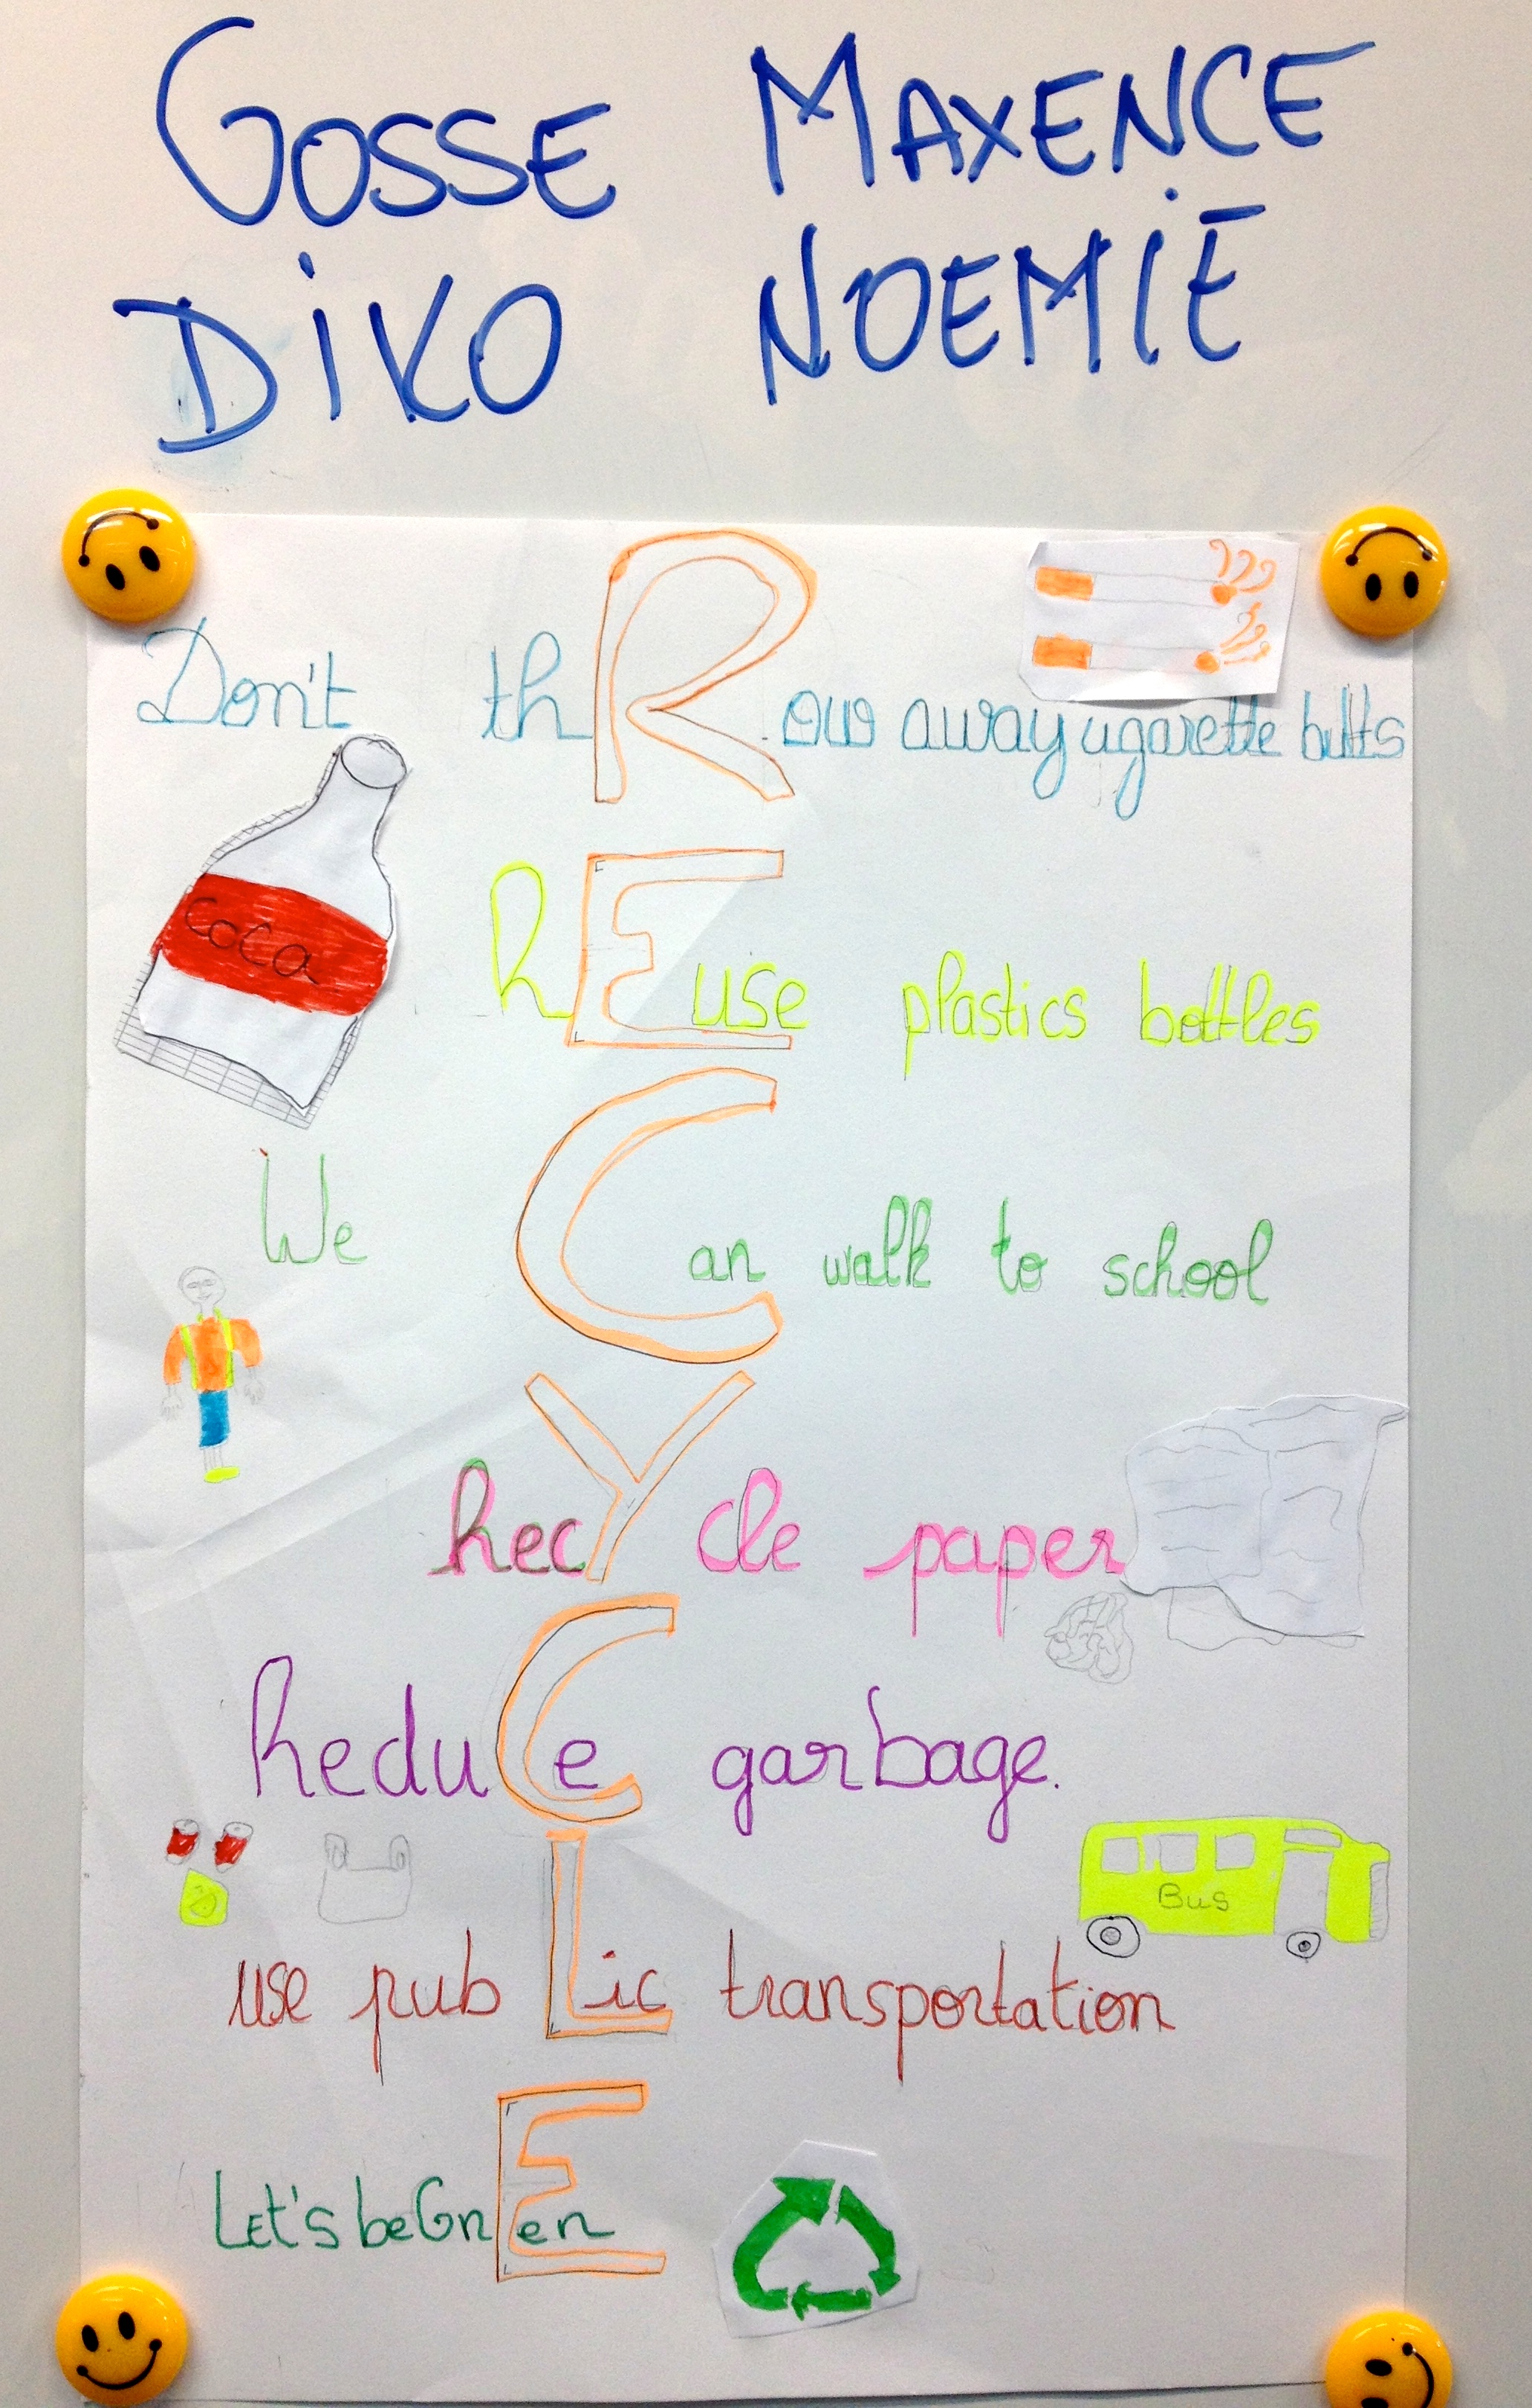 GOSSE MAXENCE
DIKO NOEMIE
Don't thRow away cigarette butts
COCA
REuse plastics bottles
We Can walk to school
RecYcle paper
ReduCe garbage.
Bus
use pubLic transportation
LET'S be GrEen